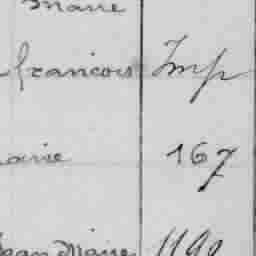 Marie
francois Imp
arie 167
Jean Marie 1190